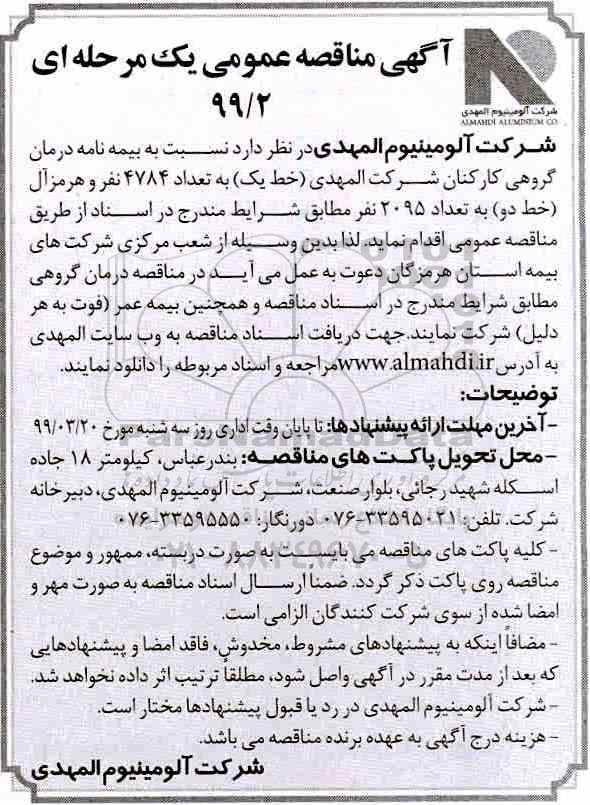 آگهی مناقصه عمومی یک مرحله ای
۹۹/۲
شرکت آلومینیوم المهدی
ALMAHDI ALUMINIUM CO.
شرکت آلومینیوم المهدی در نظر دارد نسبت به بیمه نامه درمان
گروهی کارکنان شرکت المهدی (خط یک) به تعداد ۴۷۸۴ نفر و هرمزآل
(خط دو) به تعداد ۲۰۹۵ نفر مطابق شرایط مندرج در اسناد از طریق
مناقصه عمومی اقدام نماید. لذا بدین وسیله از شعب مرکزی شرکت های
بیمه استان هرمزگان دعوت به عمل می آید در مناقصه درمان گروهی
مطابق شرایط مندرج در اسناد مناقصه و همچنین بیمه عمر (فوت به هر
دلیل) شرکت نمایند. جهت دریافت اسناد مناقصه به وب سایت المهدی
به آدرس www.almahdi.ir مراجعه و اسناد مربوطه را دانلود نمایند.
توضیحات:
- آخرین مهلت ارائه پیشنهادها: تا پایان وقت اداری روز سه شنبه مورخ ۹۹/۰۳/۲۰
- محل تحویل پاکت های مناقصه: بندرعباس، کیلومتر ۱۸ جاده
اسکله شهید رجائی، بلوار صنعت، شرکت آلومینیوم المهدی، دبیرخانه
شرکت. تلفن: ۳۳۵۹۵۰۲۱-۰۷۶ دورنگار: ۳۳۵۹۵۵۵۰-۰۷۶
- کلیه پاکت های مناقصه می بایست به صورت دربسته، ممهور و موضوع
مناقصه روی پاکت ذکر گردد. ضمنا ارسال اسناد مناقصه به صورت مهر و
امضا شده از سوی شرکت کنندگان الزامی است.
- مضافاً اینکه به پیشنهادهای مشروط، مخدوش، فاقد امضا و پیشنهادهایی
که بعد از مدت مقرر در آگهی واصل شود، مطلقاً ترتیب اثر داده نخواهد شد.
- شرکت آلومینیوم المهدی در رد یا قبول پیشنهادها مختار است.
- هزینه درج آگهی به عهده برنده مناقصه می باشد.
شرکت آلومینیوم المهدی